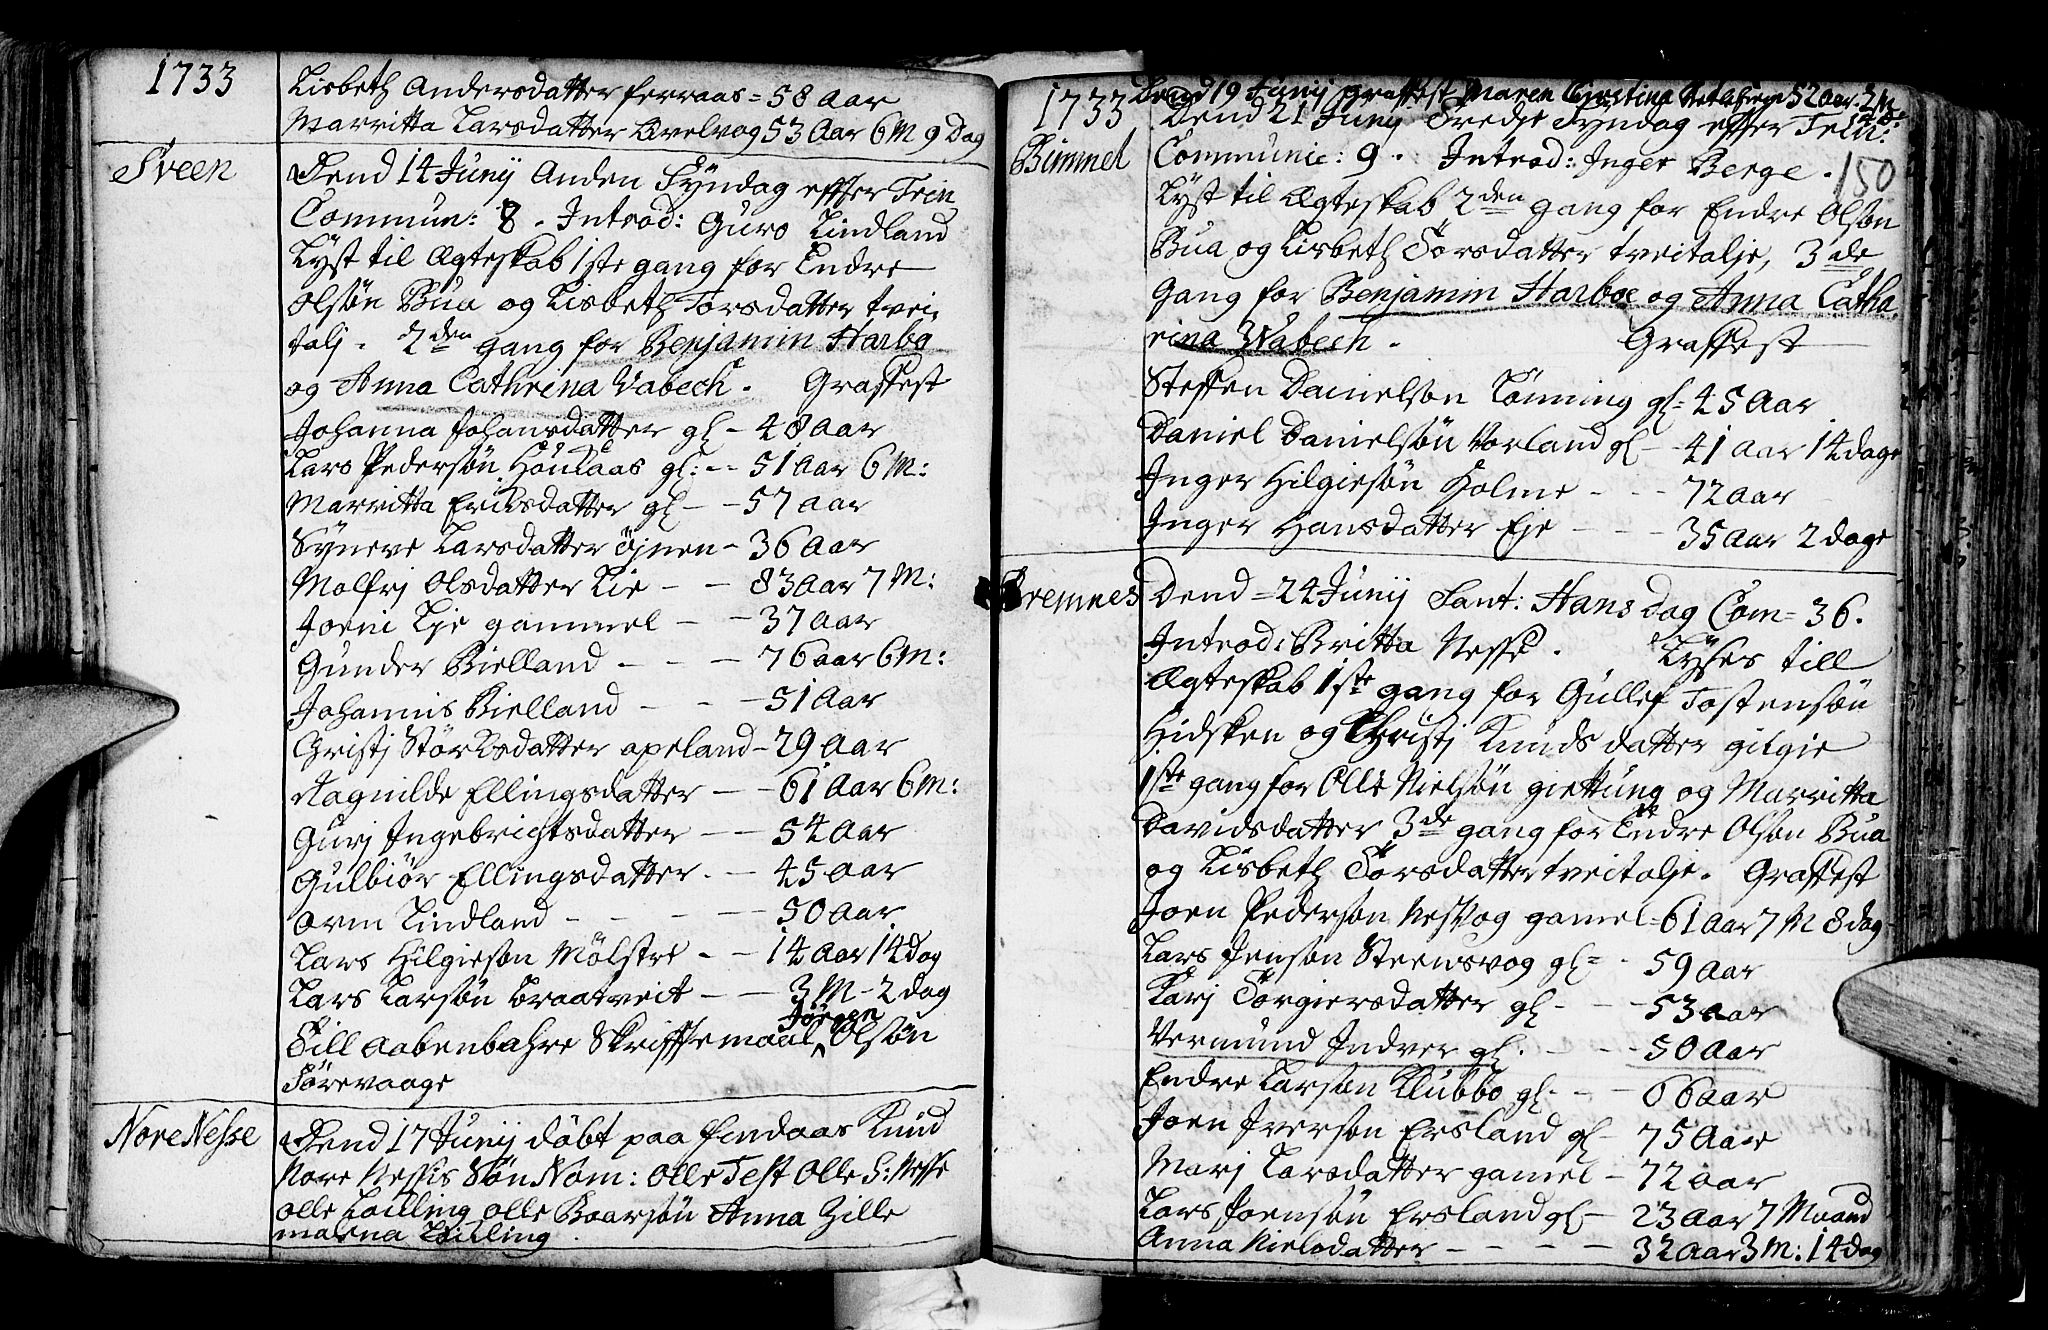 1733
Lisbeth Andersdatter ferraas = 58 Aar
Marritta Larsdatter Axelvog 53 Aar 6 M 9 Dag
Sveen
Dend 14 Junij Anden Syndag effter Trin
Commun: 8. Introd: Guro Lindland
Lyst til Ægteskab 1ste gang for Endre
Olsøn Bua og Lisbeth Torsdatter tvei
talj. 2den gang for Benjamin Harbo
og Anna Cathrina Vabech. Graffest
Johanna Johansdatter gl - 48 aar
Lars Pedersøn Houkaas gl: -- 51 Aar 6 M:
Marritta Eriksdatter gl - - 57 aar
Syneve Larsdatter Øjnen - 36 Aar
Malfrj Olsdatter Lie - - 83 Aar 7 M:
Joeni Lje gammel - - 37 aar
Gunder Bielland - - - 76 aar 6 M:
Johannis Bielland - - - 51 Aar
Christj Størksdatter apeland - 29 Aar
Ragnilde Ellingsdatter - - 61 Aar 6 M:
Gurj Ingebrigtsdatter - - 54 Aar
Gulbiör Ellingsdatter. - 45 Aar
Orm Lindland - - - - 50 Aar
Lars Hilgiesøn Mölstre - - 14 Aar 14 Dag
Lars Larsøn braatveit - - 3 M - 2 dag
Jörgen
Till aabenbahre Skrifftemaal Olsøn
Sörevaage
Nore Nesse
Dend 17 Junij döbt paa Findaas Knud
Nore Nessis Søn Nom: Olle Test Olle S: Nesse
Olle Lailling Olle Boarsøn Anna Zille
malena Lailling.
1733
Dend 19 Junij graffest Maren Christina 52 aar. 2 M
Dend 21 Junij Tredje Syndag effter Trin:
Bimmel
Communic: 9. Introd: Inger Berge.
150
Lyst til Ægteskab 2den gang for Endre Olsøn
Bua og Lisbeth Torsdatter tveitalje, 3de
Gang for Benjamin Harboe og Anna Catha
rina Wabech. Graffest
Steffen Danielsøn Lönning gl = 45 Aar
Daniel Danielsøn Vorland gl - 41 aar 14 dage
Inger Hilgiesøn Holme - - - 72 aar
Inger Hansdatter Eje - - - 35 Aar 2 dage
Bremnes
Dend = 24 Junij Sant: Hans Dag Com = 36.
Introd: Britta Nesse. Lyses till
Ægteskab 1ste gang for Gullef Tostensøn
Hidsken og Christj Knudsdatter gilgie
1ste gang for Olle Nielsøn giettung og Marritta
Davidsdatter 3de gang for Endre Olsøn Bua
og Lisbeth Torsdatter tveitalje. Graffest
Joen Pedersøn Nesvog gamel = 61 Aar 7 M 8 dag
Lars Jensøn Steensvog gl = - 59 Aar
Karj Torgiersdatter gl - - - 53 aar
Vermund Indver gl. - - - 50 Aar
Endre Larsøn Klubbo gl - - 66 aar
Joen Iversøn Ersland gl - 75 Aar
Marj Larsdatter gamel - 72 aar
Lars Joensøn Ersland gl - 23 Aar 7 Maand
Anna Nielsdatter - - - - 32 Aar 3 M: 14 dag